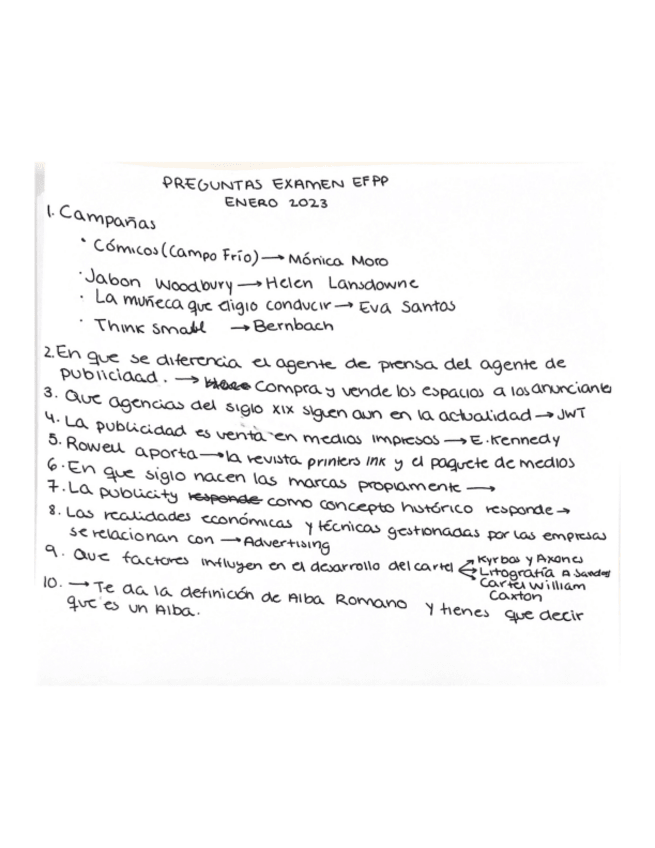 PREGUNTAS EXAMEN EFPP
ENERO 2023
1. Campañas
• Cómicos (Campo Frío) → Mónica Moro
• Jabon Woodbury → Helen Lansdowne
• La muñeca que eligio conducir → Eva Santos
• Think small → Bernbach
2. En que se diferencia el agente de prensa del agente de
publicidad. → Compra y vende los espacios a los anunciantes
3. Que agencias del siglo XIX siguen aun en la actualidad → JWT
4. La publicidad es venta en medios impresos → E. Kennedy
5. Rowell aporta → la revista printers ink y el paquete de medios
6. En que siglo nacen las marcas propiamente →
7. La publicity responde como concepto histórico responde →
8. Las realidades económicas y técnicas gestionadas por las empresas
se relacionan con → Advertising
9. Que factores influyen en el desarrollo del cartel Kyrbos y Axones
Litografía A Sandes
Cartel William
Caxton
10. → Te da la definición de Alba Romano y tienes que decir
que es un Alba.